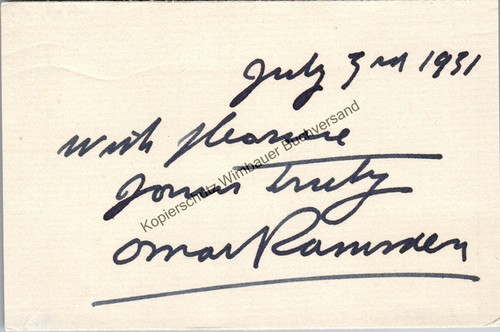 July 3rd 1931
With pleasure
Yours Truly
Omar Ramsden
Kopierschutz Wimbauer Buchversand